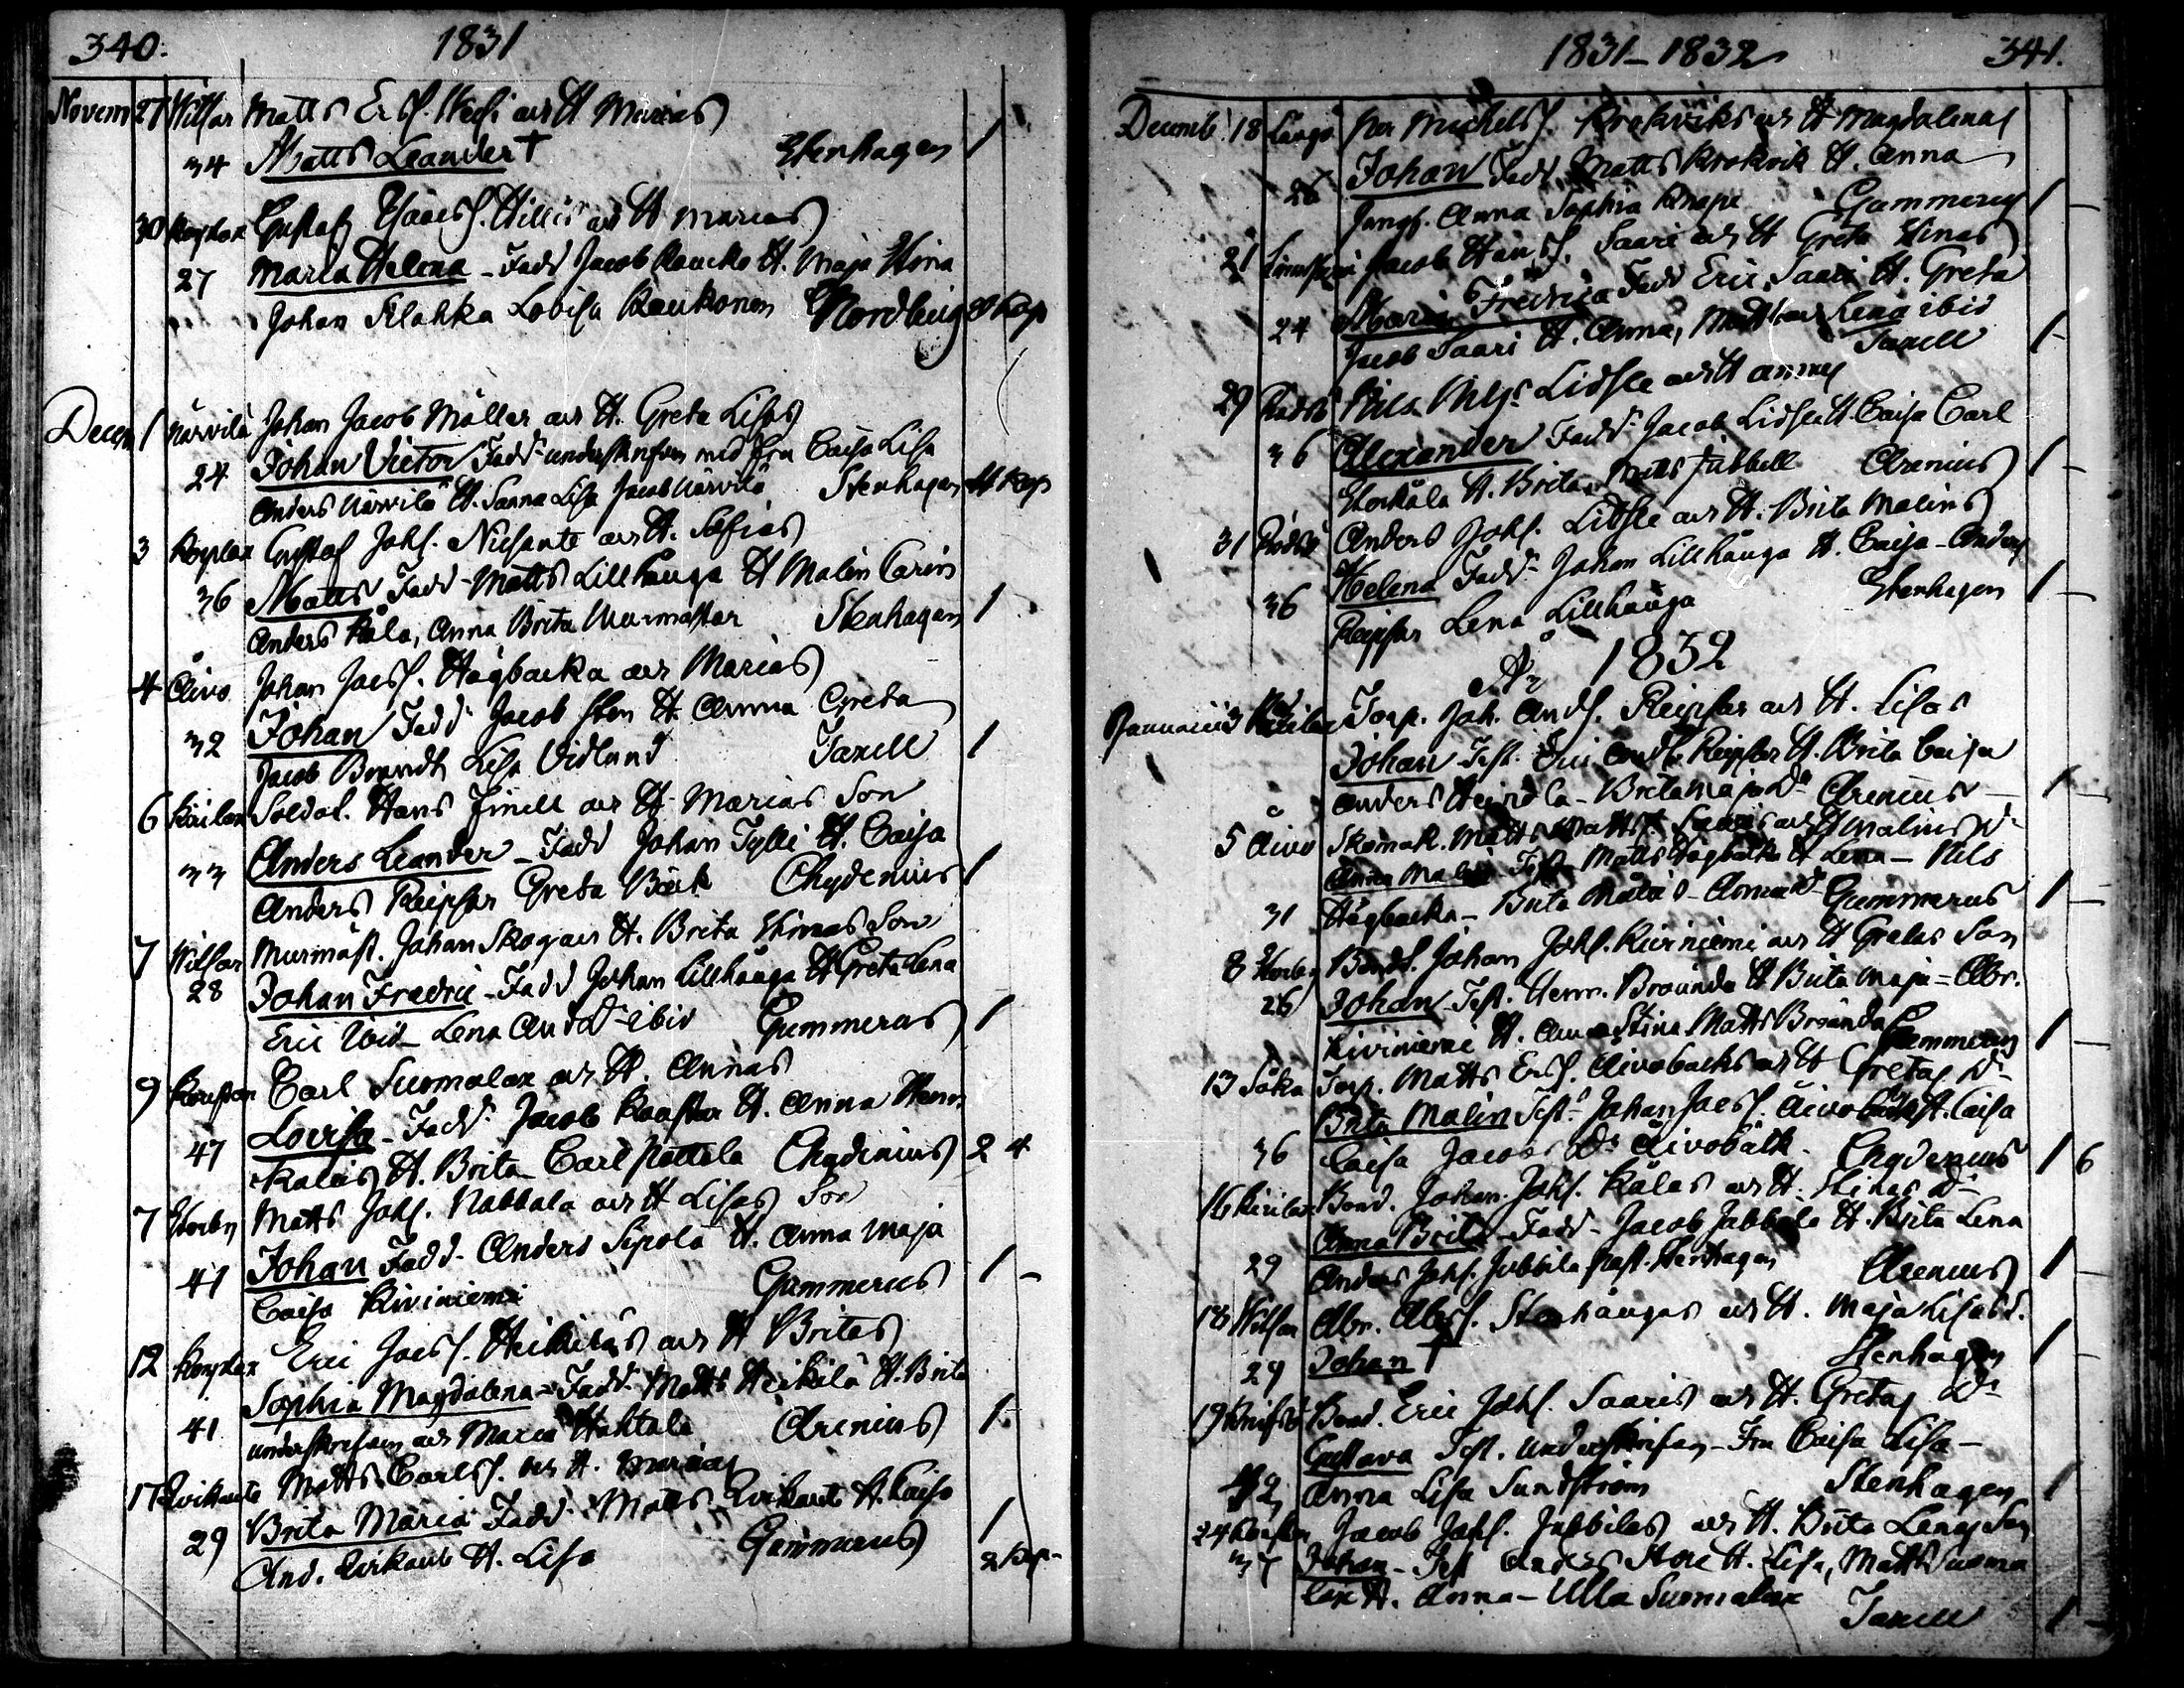 340.
1831
Novem 27 Wilsar Matts Ers. Wesi och H Marias
34 Matts Leander † Stenhagen 1
30 Kaplax Gustaf Isaacs. Hillis och H Marias
27 Maria Helena - Fadd Jacob Kaucko H. Maja Stina
Johan Klahka Lovisa Kaukonen Nordling 30 kop
Decem 1 Närvilä Johan Jacob Möller och H. Greta Lisas
24 Johan Victor Fadd underskrifven med fru Caisa Lisa
Anders Närvilä H. Sanna Lisa Jacob Närvilä Stenhagen kop
3 Koplax Gustaf Johs. Nisante och H. Sofias
36 Matts Fadd - Matts Lillhauga H Malin Carin
Anders Kåla, Anna Brita Murmästar Stenhagen 1
4 Åivo Johan Jacs. Högbacka och Marias
32 Johan Fadd Jacob Sten H. Anna Greta
Jacob Brandt Lisa Vidland Taxell 1
6 Kirilax Soldat. Hans Finell och H. Marias Son
33 Anders Leander - Fadd Johan Tylli H. Caisa
Anders Reipsar Greta Bäck Chydenius 1
7 Wilsar Murmäst. Johan Skog och H. Brita Stinas Son
28 Johan Fredric - Fadd Johan Lillhauga H Greta Lena
Eric ibid - Lena And D ibid Gummerus 1
9 Carl Suomalax och H. Annas
47 Lovisa - Fadd. Jacob Kaastar H. Anna Herm
Kalais H. Brita Carl Pottala Chydenius 2 4
7 Storby Matts Johs. Nabbala och H Lisas Son
41 Johan Fadd - Anders Sipola H. Anna Maja
Caisa Kiviniemi Gummerus 1 -
12 Koplax Eric Jacs. Heikiläs och H Britas
41 Sophia Magdalena - Fadd Matts Heikilä H. Brita
underskrifven och Maria Hahtala Arenius 1-
17 Rvikants Matts Carls. och H. Marias
29 Brita Maria Fadd Matts Rvikants H. Caisa
And. Rvikants H. Lisa Gummerus 1
2 kop-
1831-1832
341.
Decemb 18 Långö Per Michels. Krokviks och H Magdalenas
26 Johan Fadd Matts Krokvik H. Anna
Jungf. Anna Sophia Knape Gummerus 1 -
21 Jacob Hans. Saari och H Greta Stinas
24 Maria Fredrica Fadd Eric Saari H. Greta
Jacob Saari H. Anna, Matts och Lena ibid Taxell 1-
29 Rödsö Nils Nils. Lidsle och H Annas
36 Alexander Fadd. Jacob Lidsle H. Caisa Carl
Storkåla H. Brita, Matts Jubbell Arenius 1 -
31 Rödsö Anders Johs. Lidsle och H. Brita Malins
36 Helena Fadd - Johan Lillhauga H. Caisa - Anders
Reipsar Lena Lillhauga Stenhagen 1 -
År 1832
Januarius 3 Kirilax Torp. Joh. Ands. Reipsar och H. Lisas
Johan Test. Eric Ands. Reipsar H. Brita Caisa
Anders Heinola - Brita Maja D. Arenius - 1 -
5 Åivo Skomak. Matts Matts. Saaris och H Malins D
31 Anna Malin Test. Matts Högbacka H Lena - Nils
Högbacka - Brita Matts D - Anna D Gummerus 1 -
8 Storby Bonds. Johan Johs. Kiviniemi och H Gretas Son
26 Johan Test. Herm. Broända H Brita Maja - Abr.
Kiviniemi H. Anna Stina Matts Broända Gummerus 1 -
13 Såka Torp. Matts Ers. Åivobacks och H Gretas D
Brita Malin Test - Johan Jacs. Åivobäck H. Caisa
36 Caisa Jacobs D. Åivobäck - Chydenius 1 6
16 Kirilax Bond. Johan Johs. Kålas och H. Stinas D
29 Anna Brita Fadd - Jacob Jubbila H. Brita Lena
Anders Johs. Jubbila past. Stenhagen Arenius 1
18 Wilsar Abr. Abrs. Storhaugas och H. Maja Lisas d.
29 Johan † Stenhagen 1
19 Knifsö Bond. Eric Johs. Saaris och H. Gretas D
Gustava Test. Underskrifven - Fru Caisa Lisa -
42 Anna Lisa Sundström Stenhagen 1
24 Jacob Johs. Jubbilas och H. Brita Lenas Son
37 Johan - Test Anders Store H. Lisa, Matts Suoma
lax H. Anna - Ulla Suomalax Taxell 1 -